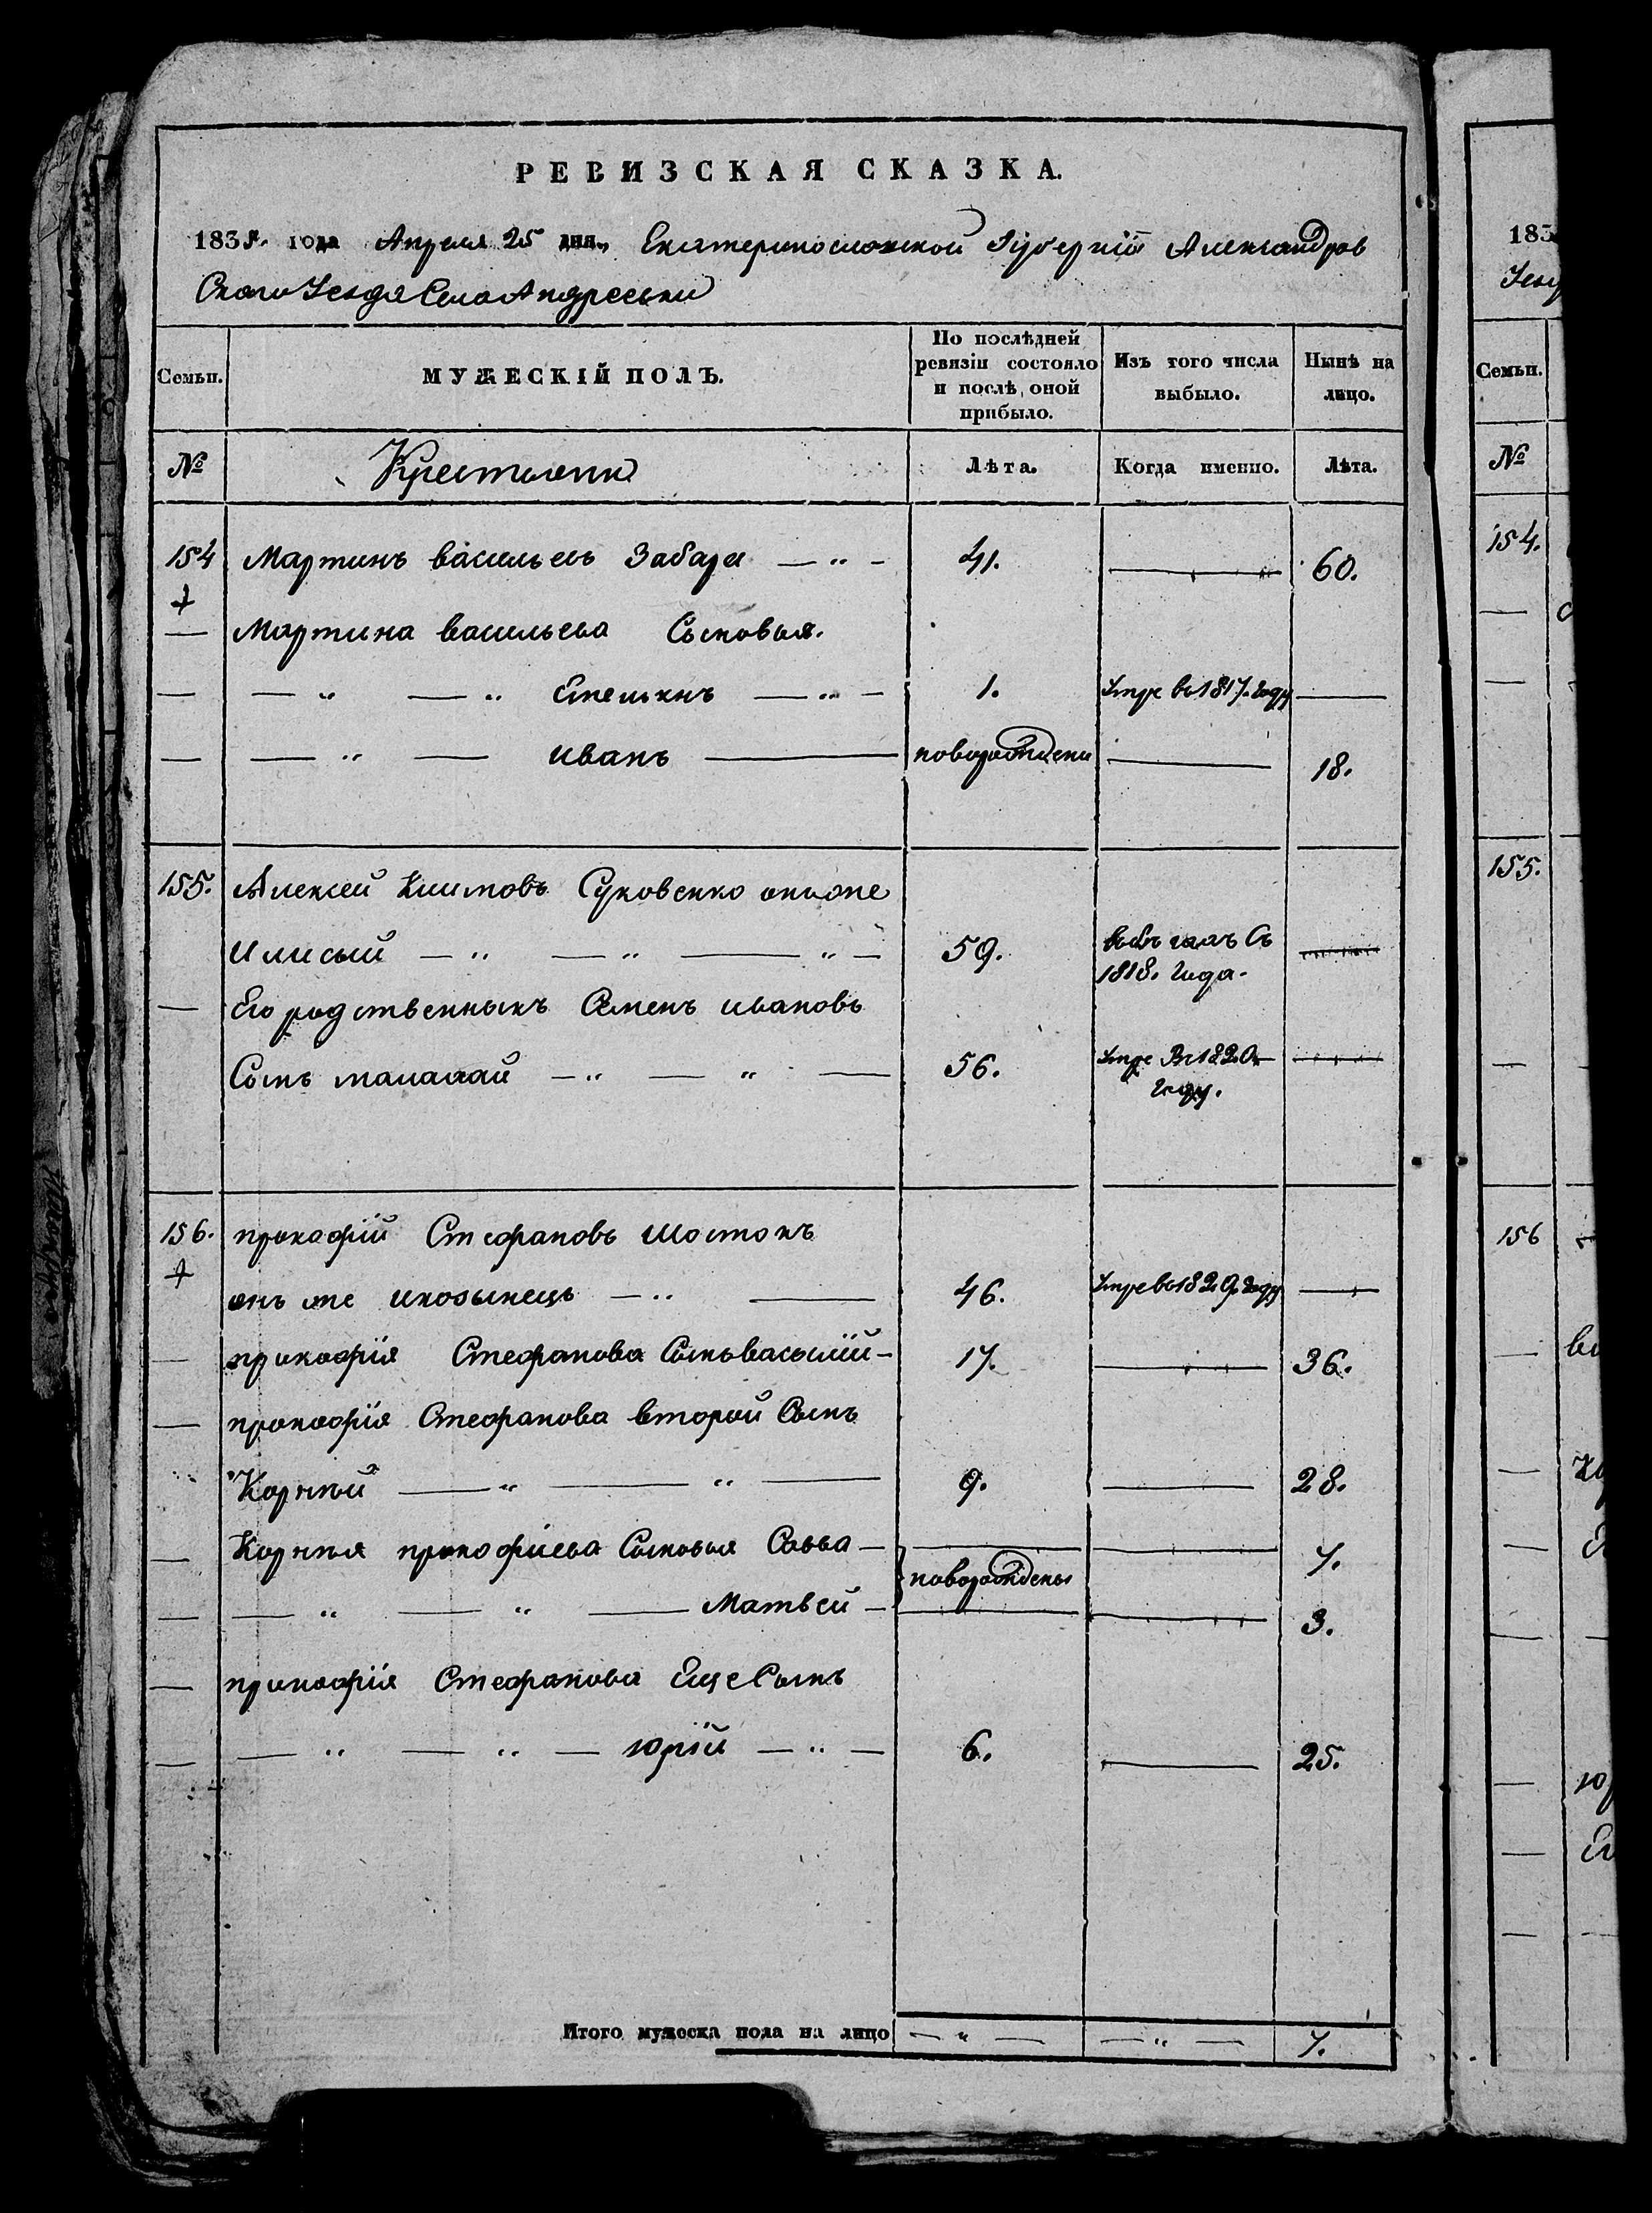 РЕВИЗСКАЯ СКАЗКА.
1835. года Апреля 25 дня, Екатеринославской Губерніи Александров
Скаго Уезда Села Андреевки
Семьи. МУЖЕСКІЙ ПОЛЪ. По послѣдней ревизіи состояло и послѣ оной прибыло. Изъ того числа выбыло. Нынѣ на лицо.
№ Крестьяне Лѣта. Когда именно. Лѣта.
154 Мартинъ васильевъ Забара — „ — 41. — 60.
+
— Мартина васильева Сыновья.
— — „ — „ — „ — 1. Умре во 1817. году —
— — „ — иванъ — новорожденн — 18.
155. Алексей Климовъ Суковенко онъ же
и лисый — „ — „ — „ — 59. въ бегахъ Съ 1818. года. —
— Его родственникъ Семенъ ивановъ
Сынъ малахай — „ — „ — 56. Умре Въ 1820 году. —
156. прокофій Стефановъ Шостакъ
+
онъ же — „ — 46. Умре во 1829. году —
— прокофія Стефанова Сынъ васылій — 17. — 36.
— прокофія Стефанова второй Сынъ
Корнѣй — „ — „ — 9. — 28.
— Корнѣя прокофіева Сыновья Савва — — 7.
новорождены
— — „ — „ — Матвей — — 3.
— прокофія Стефанова Еще Сынъ
— — „ — „ — юрій — „ — 6. — 25.
Итого мужеска пола на лицо — „ — — „ — 7.
183
Уезд
Семьи.
№
154.
—
—
155.
—
156
—
—
—
—
—
—
—